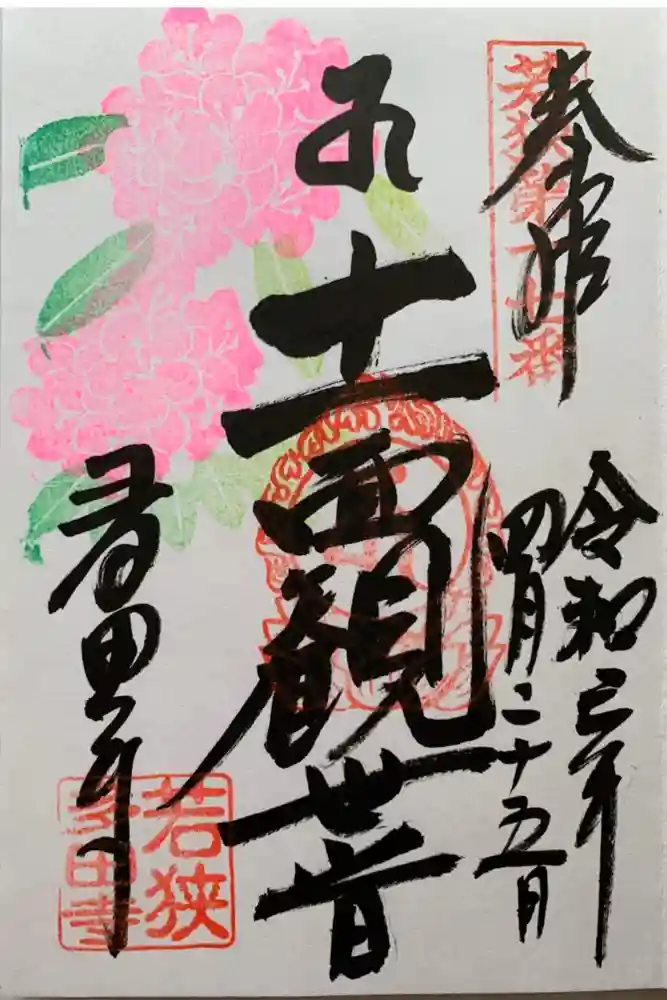 奉拝
令和三年
四月二十五日
十一面観世音
多田寺
若狭
多田寺